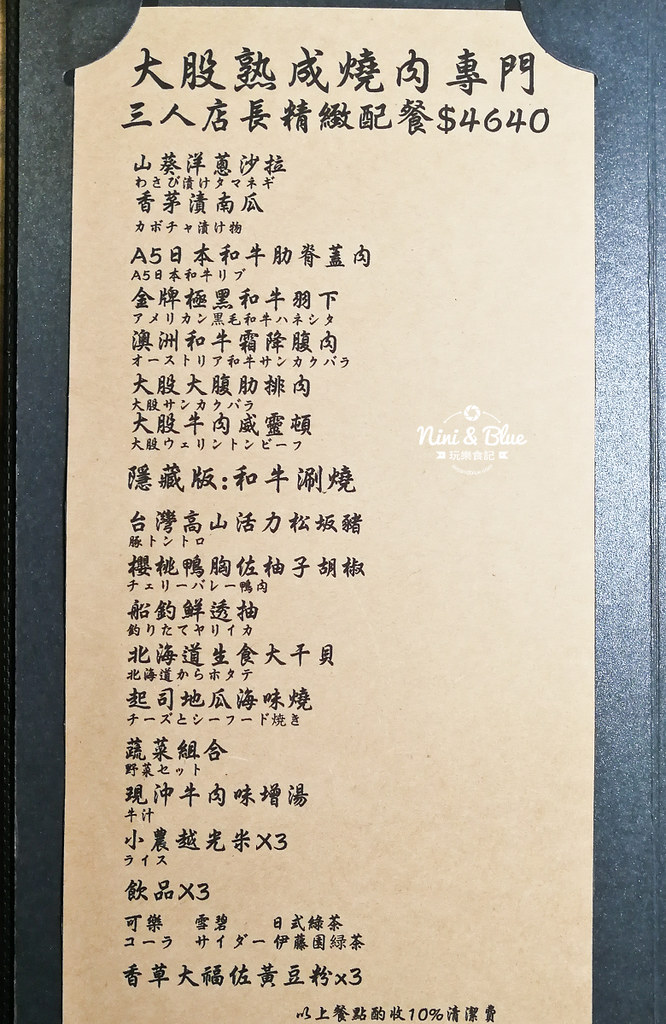 大股熟成燒肉專門
三人店長精緻配餐$4640
山葵洋蔥沙拉
わさび漬けタマネギ
香茅漬南瓜
カボチャ漬け物
A5日本和牛肋脊蓋肉
A5日本和牛リブ
金牌極黑和牛羽下
アメリカン黒毛和牛ハネシタ
澳洲和牛霜降腹肉
オーストリア和牛サンカクバラ
大股大腹肋排肉
大股サンカクバラ
大股牛肉威靈頓
大股ウェリントンビーフ
Nini & Blue
玩樂食記
隱藏版:和牛涮燒
台灣高山活力松坂豬
豚トントロ
櫻桃鴨胸佐柚子胡椒
チェリーバレー鴨肉
船釣鮮透抽
釣りたてヤリイカ
北海道生食大干貝
北海道からホタテ
起司地瓜海味燒
チーズとシーフード焼き
蔬菜組合
野菜セット
現沖牛肉味增湯
牛汁
小農越光米X3
ライス
飲品X3
可樂 雪碧 日式綠茶
コーラ サイダー 伊藤園緑茶
香草大福佐黃豆粉x3
以上餐點酌收10%清潔費